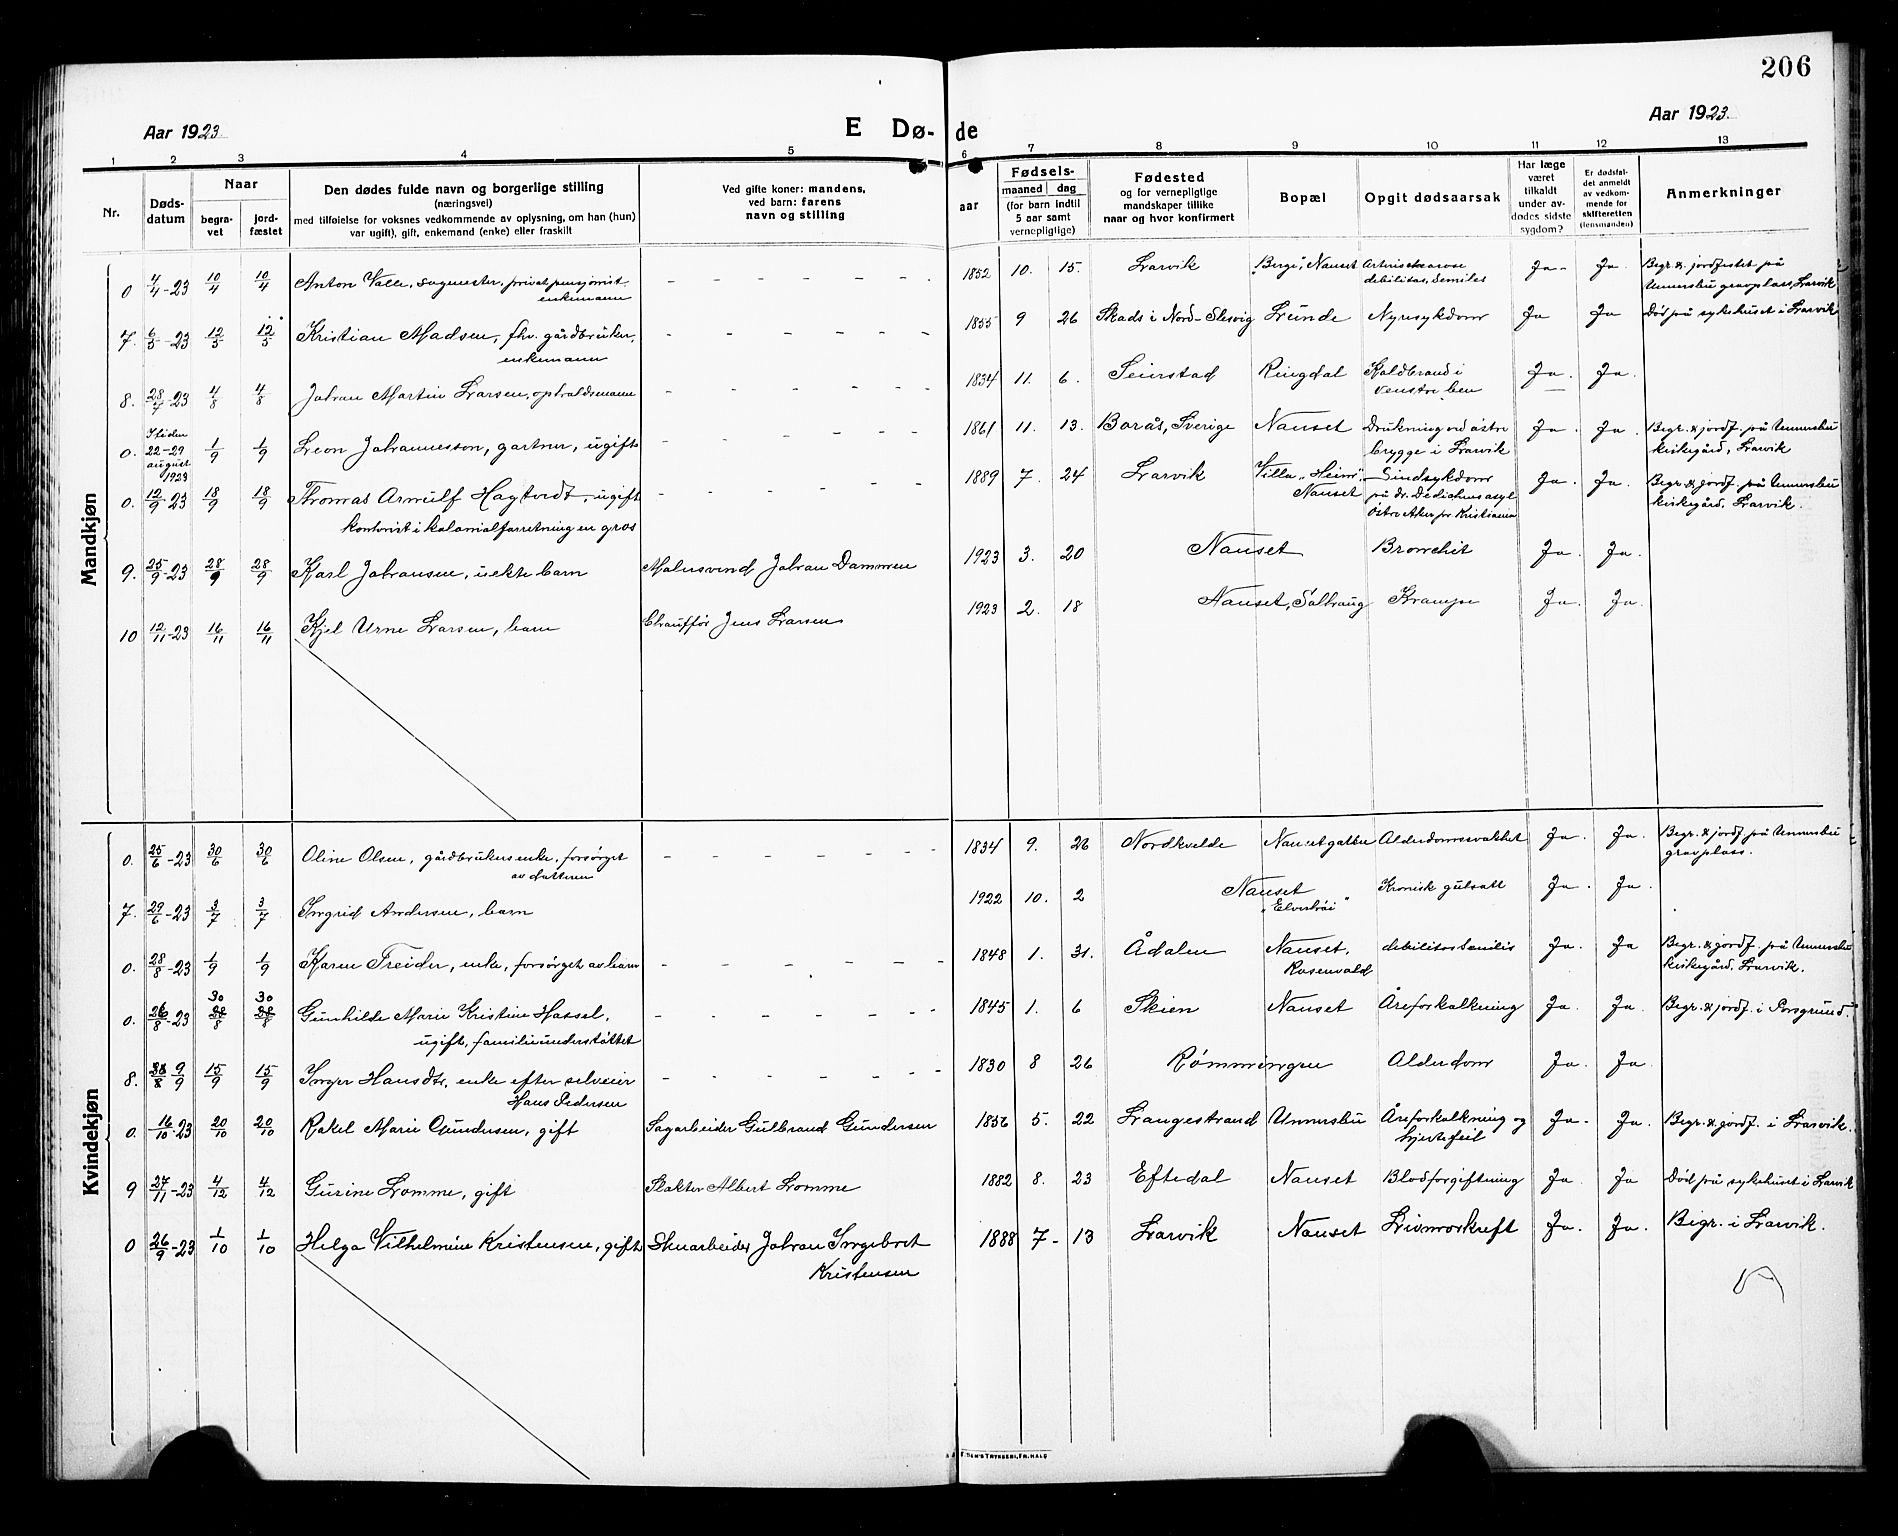 206
Aar 1923.
E Dø-
de
Aar 1923.
1 2 3 4 5 6 7 8 9 10 11 12 13
Nr.
Døds-
datum
Naar
begra-
vet
jord-
fæstet
Den dødes fulde navn og borgerlige stilling
(næringsvei)
med tilføielse for voksnes vedkommende av oplysning, om han (hun)
var ugift), gift, enkemand (enke) eller fraskilt
Ved gifte koner: mandens,
ved barn: farens
navn og stilling
Fødsels-
aar
maaned dag
(for barn indtil
5 aar samt
vernepligtige)
Fødested
og for vernepligtige
mandskaper tillike
naar og hvor konfirmert
Bopæl
Opgit dødsaarsak
Har læge
været
tilkaldt
under av-
dødes sidste
sygdom?
Er dødsfal-
det anmeldt
av vedkom-
mende for
skifteretten
(lensmanden)
Anmerkninger
Mandkjøn
0 4/4-23 10/4 10/4 Anton Valle, sagmester, privat pensjonist, - - - - - - 1852 10. 15. Larvik "Berge", Nanset Ja - Ja. Begr. & jordfestet på
enkemann debilitas, senilis Undersbu gravplass, Larvik
7. 6/5-23 12/5 12/5 Kristian Madsen, fhv. gårdbruker, - - - - - 1855 9 26 Skads i Nord-Slesvig Lunde Nyresykdom Ja Ja Død på sykehuset i Larvik
enkemann
8. 28/7-23 4/8 4/8 Johan Martin Larsen, opholdsmann - - - - - 1834 11. 6. Seierstad Ringdal Koldbrand i Ja. Ja.
venstre ben
0. I tiden
22-29
august
1923
1/9 1/9 Leon Johannesson, gartner, ugift - - - - - 1861 11. 13. Borås, Sverige Nanset Drukning ved østre Ja. Ja. Begr. & jordf. på Undersbu
brygge i Larvik kirkegård, Larvik
0. 12/9-23 18/9 18/9 Thomas Arnulf Hagtvedt, ugift - - - - - 1889 7. 24 Larvik Villa "Heim", Sindsykdom Ja. Ja. Begr. & jordf. på Undersbu
Nanset på dr. Dedichens asyl kirkegård, Larvik.
kontorist i kolonialforretning en gros Østre Aker pr Kristiania
9. 25/9-23 28/9 28/9 Karl Johansen, uekte barn Malersvend Johan Dammen 1923 3. 20 Nanset Bronchit Ja. Ja.
10 12/11-23 16/11 16/11 Kjel Arne Larsen, barn Chauffør Jens Larsen 1923 2. 18 Nanset, Solhaug Krampe Ja. Ja.
Kvindekjøn
0. 25/6-23 30/6 30/6 Oline Olsen, gårdbrukers enke, forsørget - - - - - - 1834 9. 26 Nordkvelde Nansetgaten Alderdomssvakhet Ja. Ja. Begr. & jordf på Undersbu
av datteren gravplass.
7. 29/6-23 3/7 3/7 Ingrid Andersen, barn 1922 10. 2 Nanset Kronisk gulsott Ja. Ja.
"Elverhøi"
0. 28/8-23 1/9 1/9 Karen Treider, enke, forsørget av barn - - - - - - 1848 1. 31. Ådalen Nanset, debilitas senilis Ja. Ja Begr. & jordf. på Undersbu
Rosenvold kirkegård, Larvik.
0. 26/8-23 30/8 30/8 Gunhilde Marie Kristine Hassel, - - - - - - 1845 1. 6 Skien Nanset Åreforkalkning Ja. Ja. Begr. & jordf. i Porsgrund.
ugift, familieunderstøttet
8. 9/9 15/9 15/9 Inger Hansdtr, enke efter selveier - - - - - - 1830 8 26 Rømmingen Alderdom Ja. Ja.
Hans Pedersen
0. 16/10-23 20/10 20/10 Rakel Marie Gundersen, gift Sagarbeider Gulbrand Gundersen 1856 5. 22 Langestrand Undersbu Åreforkalkning og Ja. Ja. Begr. & jordf. i Larvik.
hjertefeil
9 27/11-23 4/12 4/12 Gurine Lomme, gift Slakter Albert Lomme 1882 8. 23 Eftedal Nanset Blodforgiftning Ja. Ja Død på sykehuset i Larvik
0 26/9-23 1/10 1/10 Helga Vilhelmine Kristensen, gift Stenarbeider Johan Ingebret 1888 7- 13 Larvik Nanset Livmorkreft Ja. Ja. Begr. i Larvik.
Kristensen